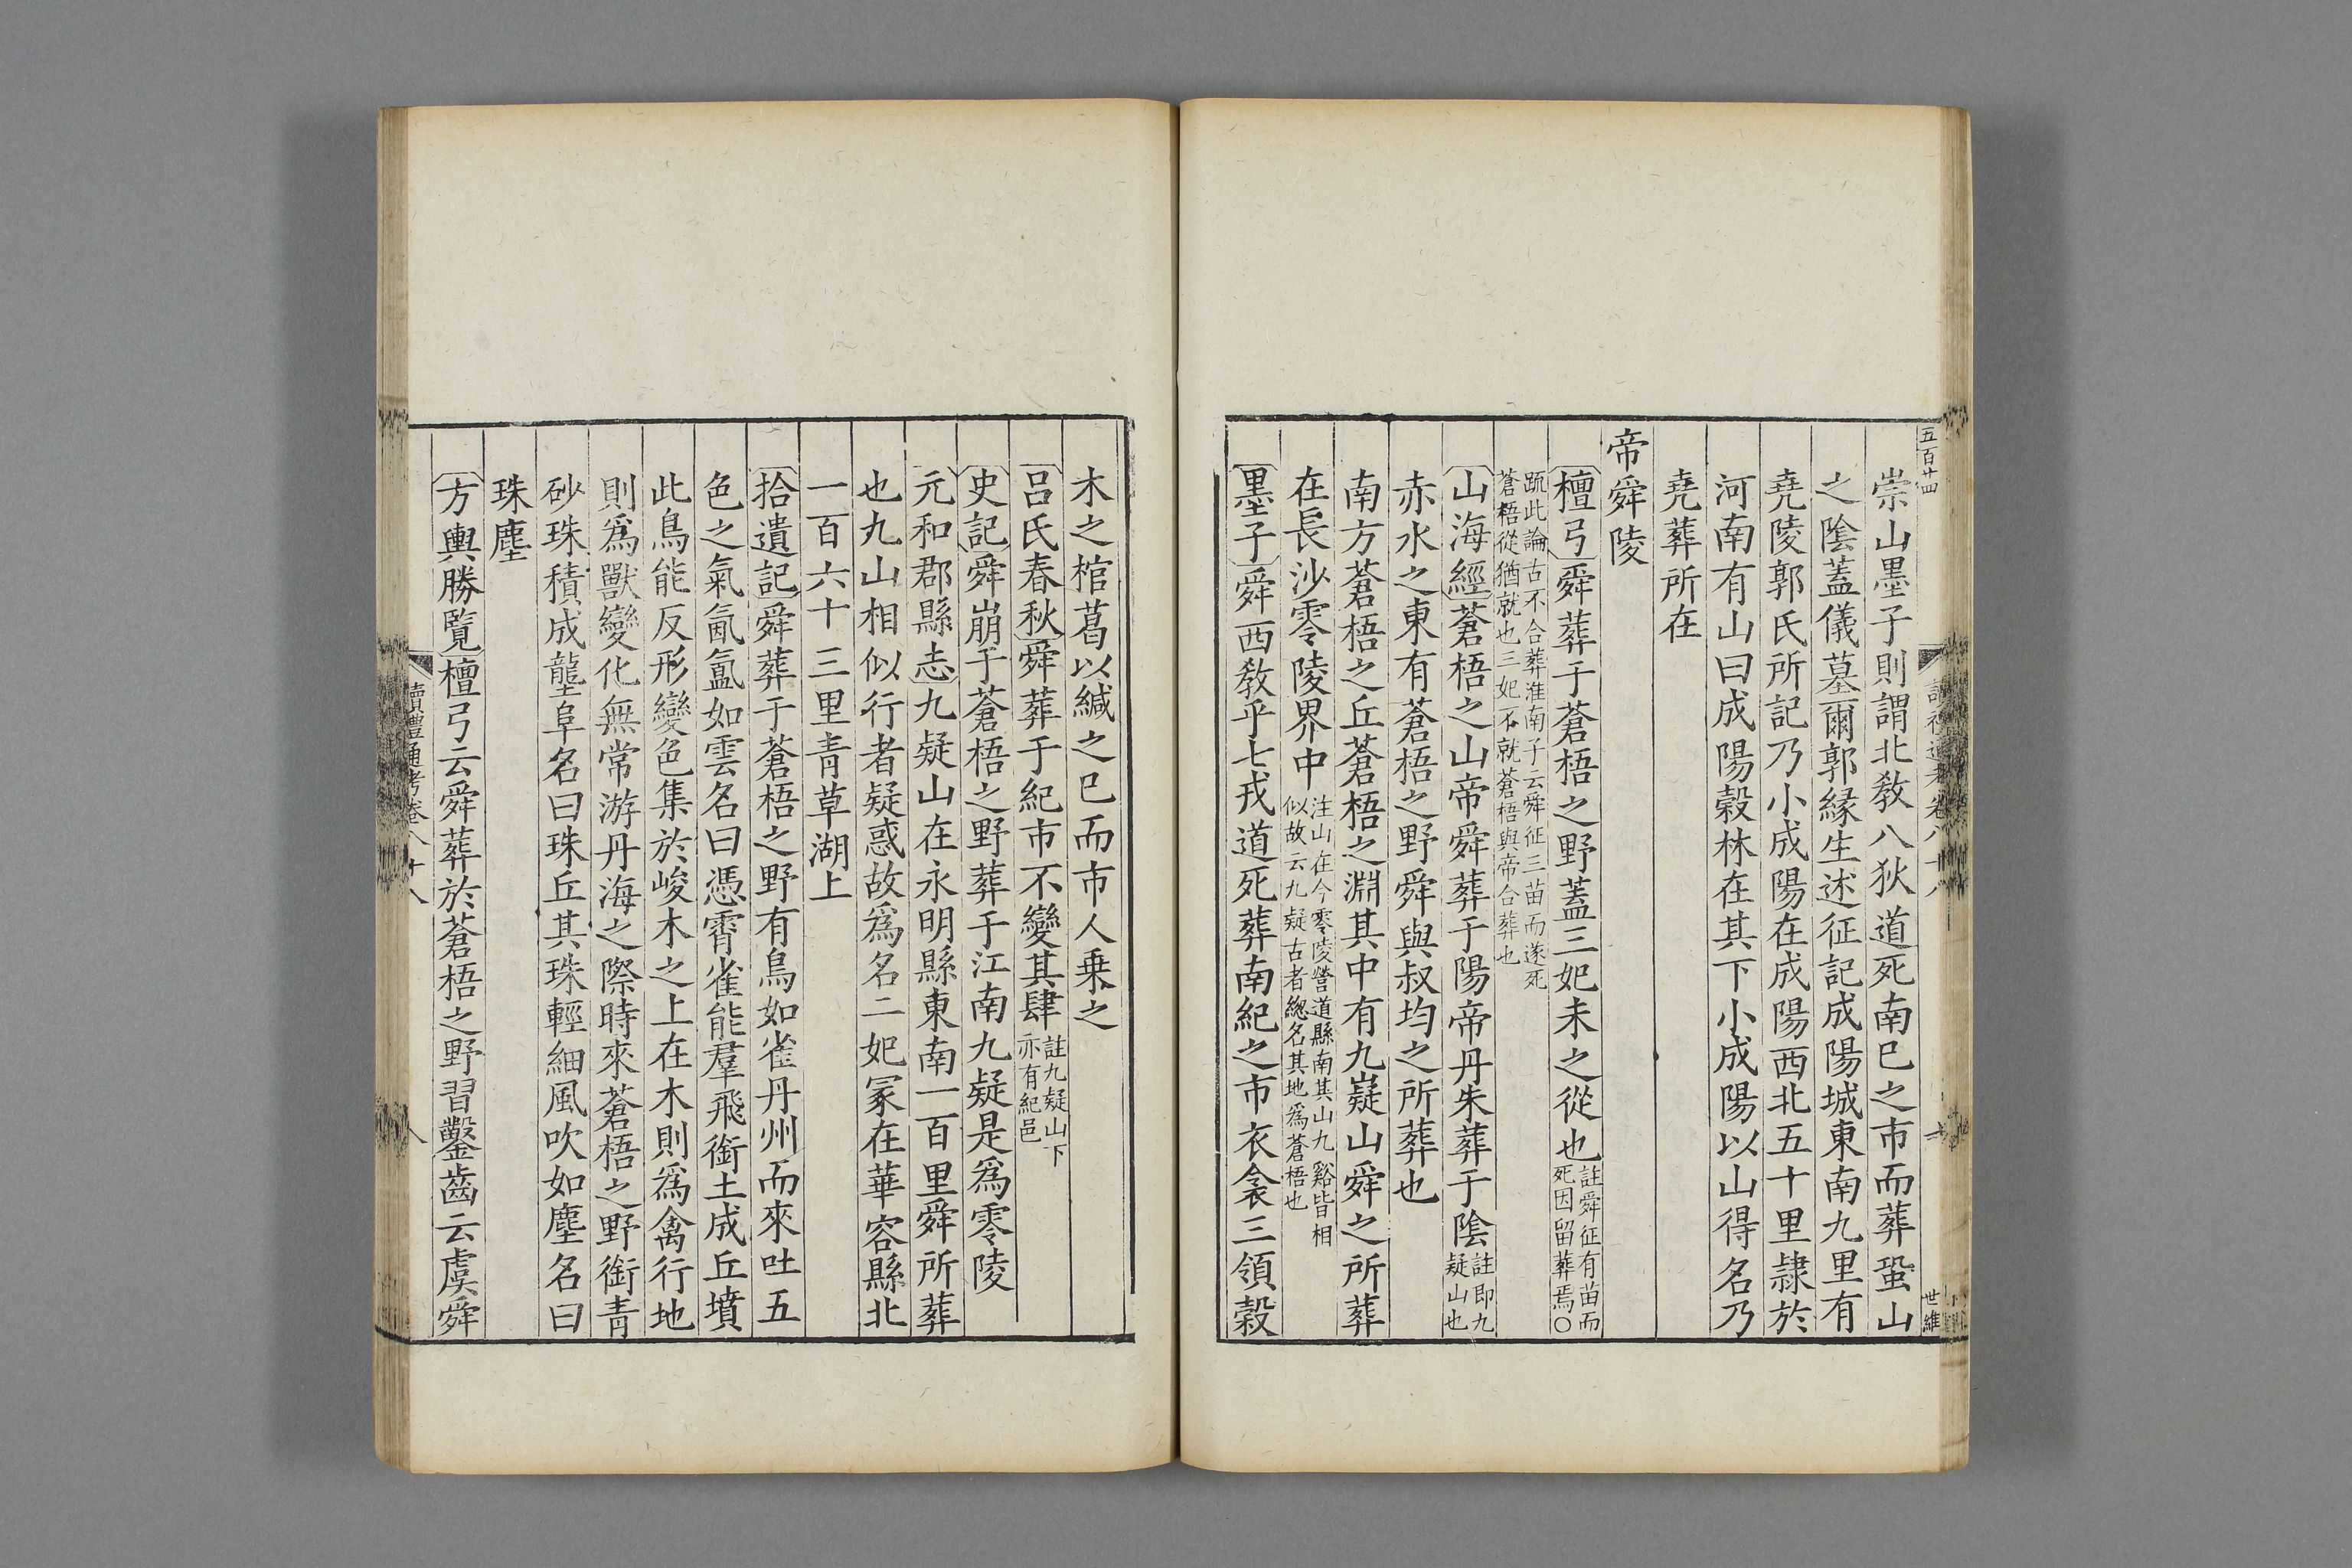 五百廿四
崇山墨子則謂北敎八狄道死南巳之市而葬蛩山
之陰蓋儀墓爾郭緣生述征記成陽城東南九里有
堯陵郭氏所記乃小成陽在成陽西北五十里隷於
河南有山曰成陽穀林在其下小成陽以山得名乃
堯葬所在
帝舜陵
檀弓舜葬于蒼梧之野蓋三妃未之從也註舜征有苗而
死因留葬焉○
䟽此論古不合葬淮南子云舜征三苗而遂死
蒼梧從猶就也三妃不就蒼梧與帝合葬也
山海經蒼梧之山帝舜葬于陽帝丹朱葬于陰註即九
疑山也
赤水之東有蒼梧之野舜與叔均之所葬也
南方蒼梧之丘蒼梧之淵其中有九嶷山舜之所葬
在長沙零陵界中注山在今零陵營道縣南其山九谿皆相
似故云九疑古者總名其地爲蒼梧也
墨子舜西敎乎七戎道死葬南紀之市衣衾三領穀
世維
木之棺葛以緘之已而市人乗之
呂氏春秋舜葬于紀市不變其肆註九疑山下
亦有紀邑
史記舜崩于蒼梧之野葬于江南九疑是爲零陵
元和郡縣志九疑山在永明縣東南一百里舜所葬
也九山相似行者疑惑故爲名二妃冢在華容縣北
一百六十三里青草湖上
拾遺記舜葬于蒼梧之野有鳥如雀丹州而來吐五
色之氣氤氳如雲名曰憑霄雀能羣飛銜土成丘墳
此鳥能反形變色集於峻木之上在木則爲禽行地
則爲獸變化無常游丹海之際時來蒼梧之野銜青
砂珠積成壟阜名曰珠丘其珠輕細風吹如塵名曰
珠塵
方輿勝覽檀弓云舜葬於蒼梧之野習鑿齒云虞舜
讀禮通考卷八十八
八